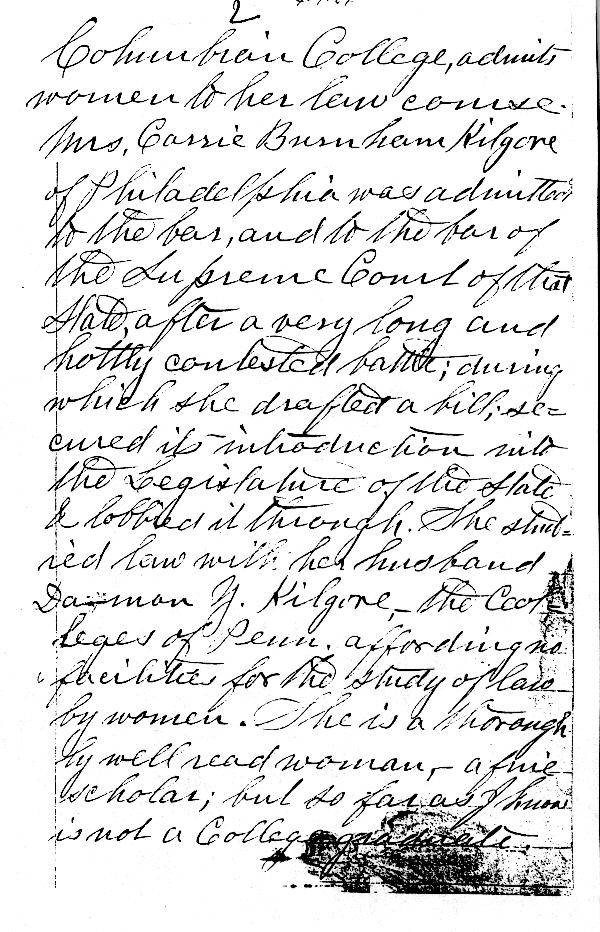 2
Columbian College, admits
women to her law course.
Mrs. Carrie Burnham Kilgore
of Philadelphia was admitted
to the bar, and to the bar of
the Supreme Court of that
State, after a very long and
hottly contested battle; during
which she drafted a bill; se=
cured its introduction into
the Legislature of the State
& lobbied it through. She stud=
ied law with her husband
Damon Y. Kilgore, – the Col
leges of Penn. affording no
facilities for the study of law
by women. She is a thorough
ly well read woman, – a fine
scholar; but so far as I know
is not a College graduate.